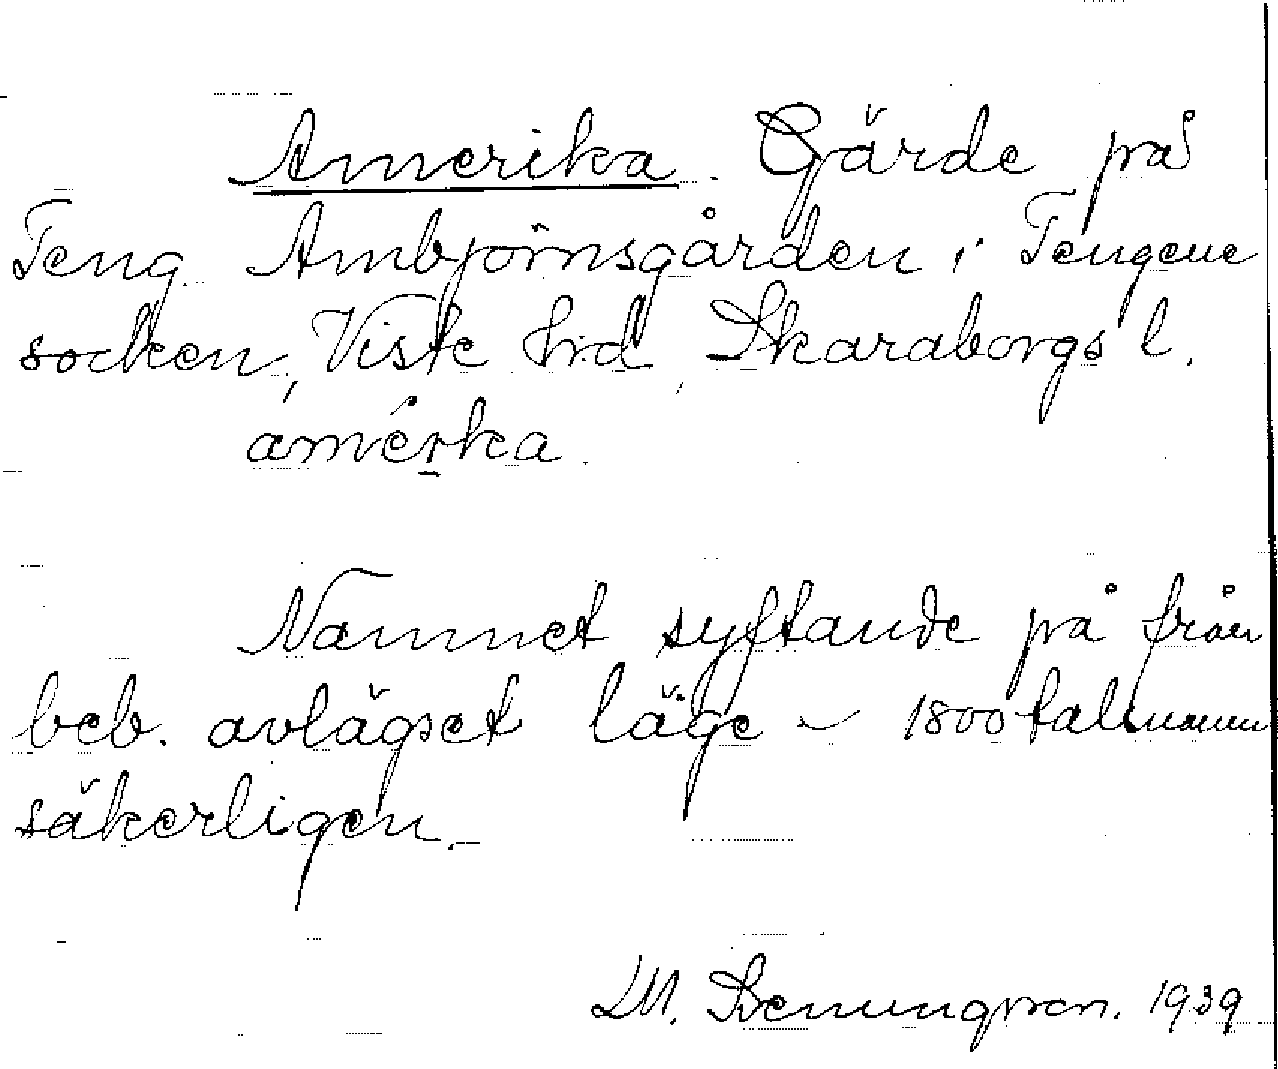 Amerika. Gärde på
Teng Ambjörnsgården i Tengene
socken, Viste hrd, Skaraborgs l.
àmérka
Namnet syftande på från
beb. avlägset läge - 1800talnamn
säkerligen.
1939